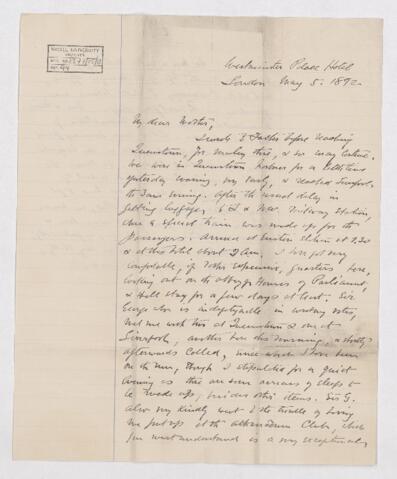 McGILL UNIVERSITY
ARCHIVES
Westminster Palace Hotel
London May 5. 1892
My dear Mother,
I wrote to Father before reaching
Queenstown, for mailing there, & so may continue.
We was in Queenstown harbour for a little time
yesterday morning, very early, & reached Liverpool
the same evening. After the usual delay in
getting luggage, to L & N.W. Railway Station,
where a special train was made up for the
Passengers. Arrived at Euston Station at 1.30
& at this Hotel about 2 am. I have got very
comfortable, if rather expensive, quarters here,
looking out on the Abbey & Houses of Parliament,
& shall stay for a few days at least. Sir
George who is indefatigable in writing notes,
met me with this at Queenstown & one at
Liverpool, another here this morning, & shortly
afterwards called, since which I have been
on the run, though I stipulated for a quiet
evening as there are some arrears of sleep to
be made up, besides other items. Sir G.
also very kindly went to the trouble of having
me put up at the Athenaeum Club, which
you must understand is a very exceptional